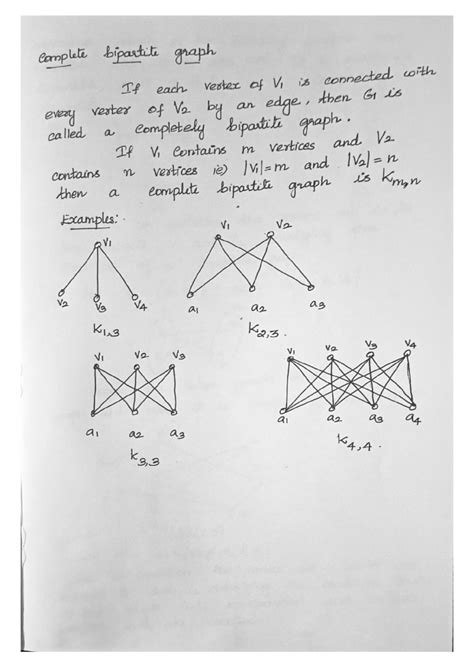 Complete bipartite graph
If each vertex of V1 is connected with
every vertex of V2 by an edge, then G1 is
called a completely bipartite graph.
If V1 contains m vertices and V2
contains n vertices ie) |V1|=m and |V2|=n
then a complete bipartite graph is Km,n
Examples:-
V1
V2 V3 V4
K1,3
V1 V2
a1 a2 a3
K2,3.
V1 V2 V3
a1 a2 a3
K3,3
V1 V2 V3 V4
a1 a2 a3 a4
K4,4.